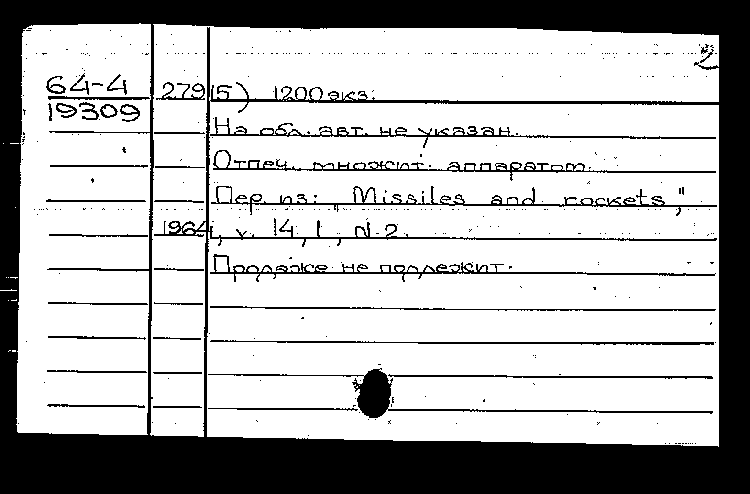 2
64-4 279(5) 1200 экз.
19309
На обл. авт. не указан.
Отпеч. множит. аппаратом.
Пер. из: „Missiles and rockets,"
1964, v. 14, I, N 2.
Продаже не подлежит.